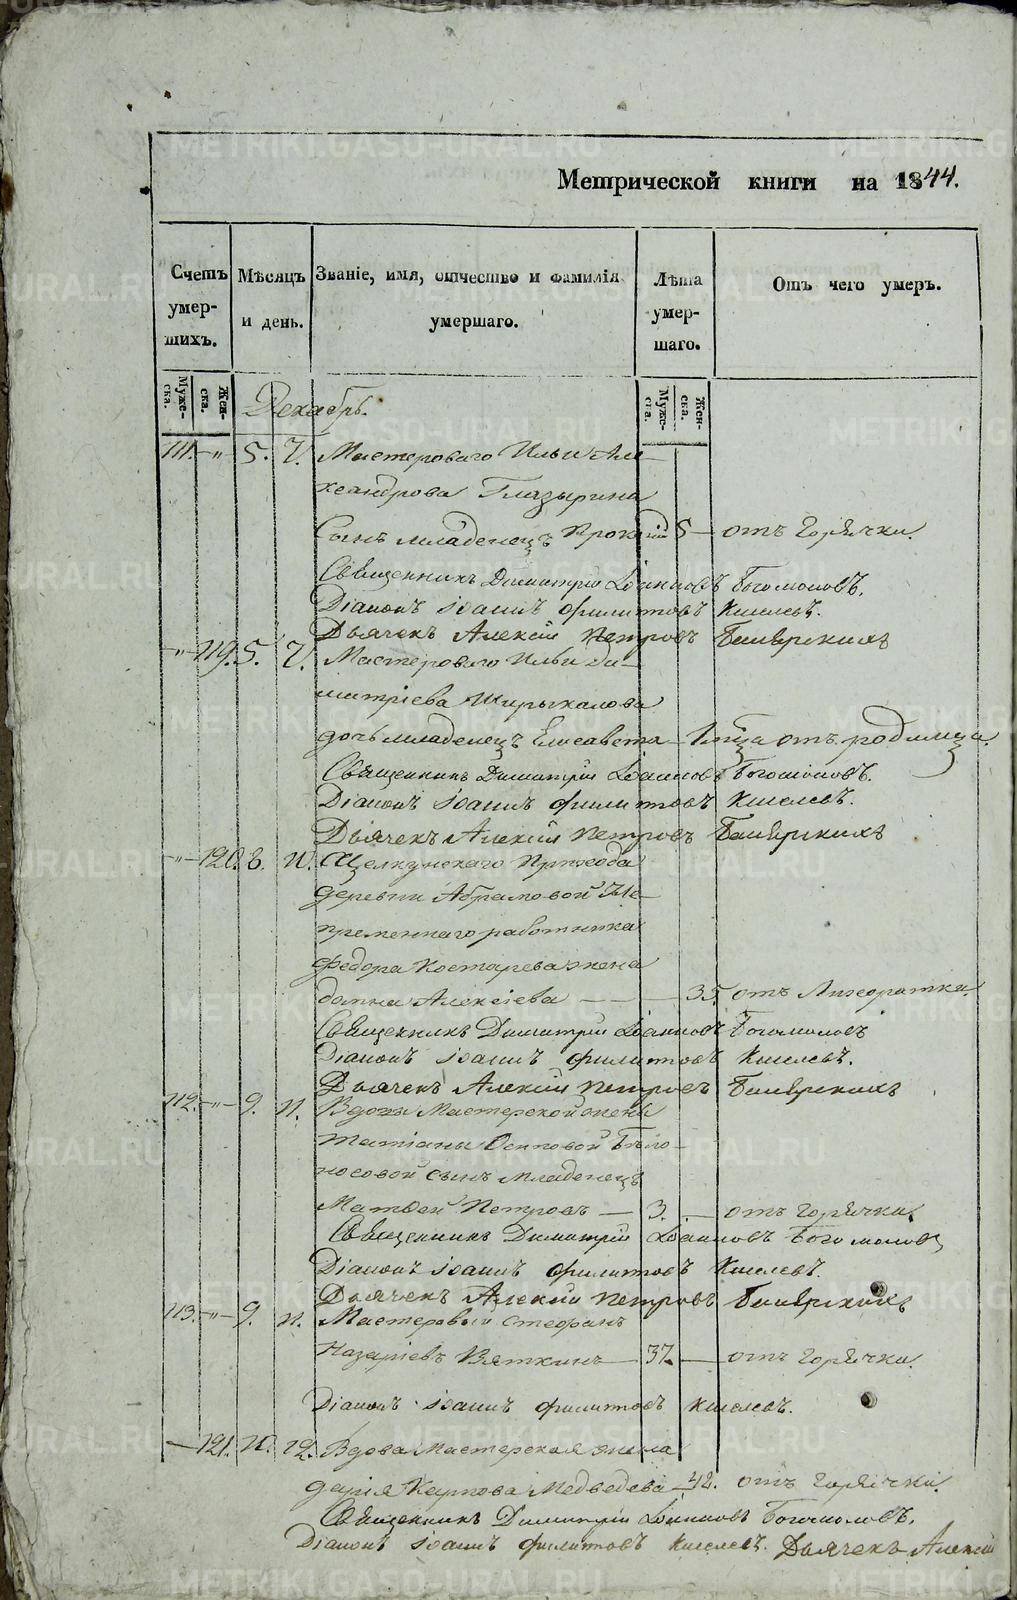 Метрической книги на 1844.
Счетъ умер-шихъ.
Мѣсяцъ и день.
Званіе, имя, отчество и фамилія умершаго.
Лѣта умер-шаго.
Отъ чего умеръ.
Муже-ска.
Жен-ска.
Муже-ска.
Жен-ска.
Декабрь.
111. — „ 5. 7. Мастероваго Ильи Але-
ксандрова Глазырина
сынъ младенецъ Прокопій 5 — отъ Горячки.
Священникъ Димитрій Іоанновъ Богомоловъ.
Діаконъ Іоаннъ Филитовъ Киселевъ.
Дьячекъ Алексій Петровъ
— „ — 119. 5. 7. Мастероваго Ильи Ди-
митріева Ширыкалова
дочь младенецъ Елисавета — отъ родимца.
Священникъ Димитрій Іоанновъ Богомоловъ.
Діаконъ Іоаннъ Филитовъ Киселевъ.
Дьячекъ Алексій Петровъ
— „ — 120. 8. 10. Щелкунскаго Прихода
деревни Абрамовой Не-
пременнаго работника
Федора Костарева жена
Домна Алексіева — — — 35. отъ Лихорадки.
Священникъ Димитрій Іоанновъ Богомоловъ
Діаконъ Іоаннъ Филитовъ Киселевъ.
Дьячекъ Алексій Петровъ
112. — „ — 9. 11. Вдовы Мастерской жены
Татіаны Осиповой Бѣло-
носовой сынъ младенецъ
Матвей Петровъ — 3. — отъ Горячки.
Священникъ Димитрій Іоанновъ Богомоловъ
Діаконъ Іоаннъ Филитовъ Киселевъ.
Дьячекъ Алексій Петровъ
113. — „ — 9. 11. Мастеровый Стефанъ
Назаріевъ Вяткинъ — 37. — отъ Горячки.
Діаконъ Іоаннъ Филитовъ Киселевъ.
— 121. 10. 12. Вдова Мастерская жена
Дарія Карпова Медведева — 42. отъ Горячки.
Священникъ Димитрій Іоанновъ Богомоловъ.
Діаконъ Іоаннъ Филитовъ Киселевъ. Дьячекъ Алексій
METRIKI.GASO-URAL.RU